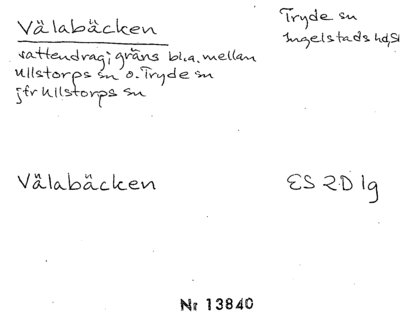 Välabäcken
Tryde sn
Ingelstads hd, Sk
vattendrag; gräns bl.a. mellan
Ullstorps sn o. Tryde sn
jfr Ullstorps sn
Välabäcken
ES 2D 1g
Nr 13840